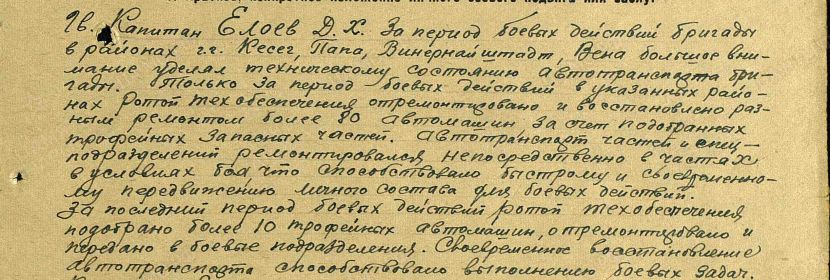 Гв. Капитан Елоев Д.Х. За период боевых действий бригады
в районах г.г. Кесег, Папа, Винернайштадт, Вена большое вни-
мание уделял техническому состоянию автотранспорта бри-
гады. Только за период боевых действий в указанных райо-
нах ротой техобеспечения отремонтировано и восстановлено раз-
ным ремонтом более 80 автомашин за счет подобранных
трофейных запасных частей. Автотранспорт частей и спец-
подразделений ремонтировался непосредственно в частях
в условиях боя, что способствовало быстрому и своевременно-
му передвижению личного состава для боевых действий.
За последний период боевых действий ротой техобеспечения
подобрано более 10 трофейных автомашин, отремонтировано и
передано в боевые подразделения. Своевременное восстановление
автотранспорта способствовало выполнению боевых задач.